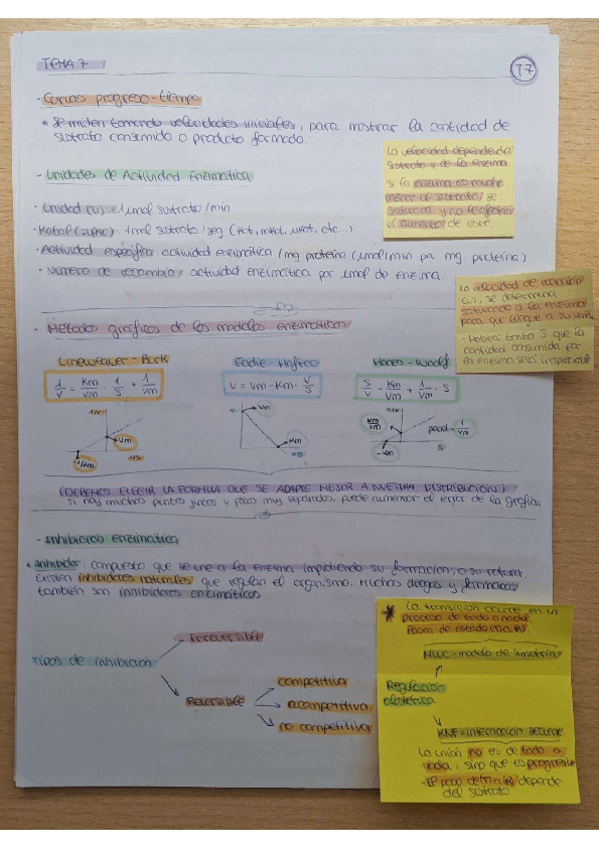 TEMA 7
T7
- Curvas progreso-tiempo
* Se miden tomando velocidades iniciales, para mostrar la cantidad de
sustrato consumido o producto formado.
La velocidad depende del
sustrato y de la enzima
si la enzima es mucho
menor al sustrato, se
saturará y no
el aumento de este.
- Unidades de Actividad Enzimática
· Unidad (U) = 1 µmol sustrato/min
· Katal : 1 mol sustrato/seg (Kat, mkat, µkat, etc...)
· Actividad específica: actividad enzimática/mg proteína (µmol/min por mg proteína)
· Número de recambio: actividad enzimática por µmol de enzima.
La velocidad de reacción
(V), se determina
saturando a la enzima
para que llegue a su
- Habrá tanto S que la
cantidad consumida por
la enzima será
- Métodos gráficos de los modelos enzimáticos
Lineweaver-Burk
Eadie-Hofstee
Hanes-Woolf
1/V = Km/Vm · 1/S + 1/Vm
V = Vm - Km · V/S
S/V = Km/Vm + 1/Vm · S
Vm
Km
Km/Vm
pend = 1/Vm
-Km
(DEBEMOS ELEGIR LA FÓRMULA QUE SE ADAPTE MEJOR A NUESTRA DISTRIBUCIÓN)
si hay muchos puntos juntos y pocos muy separados, puede aumentar el error de la gráfica
- Inhibición enzimática
* Inhibidor: compuesto que se une a la enzima impidiendo su formación, o su rotura.
Existen inhibidores naturales que regulan el organismo. Muchas drogas y fármacos
también son inhibidores enzimáticos
Tipos de inhibición
Irreversible
Reversible
competitiva
acompetitiva
no competitiva
* La transición ocurre en un
proceso de todo o nada
MWC - modelo de simetría
Regulación
alostérica
KNF = interacción secuenc
La unión no es de todo o
nada, sino que es progresiva
- El paso de T a R depende
del sustrato